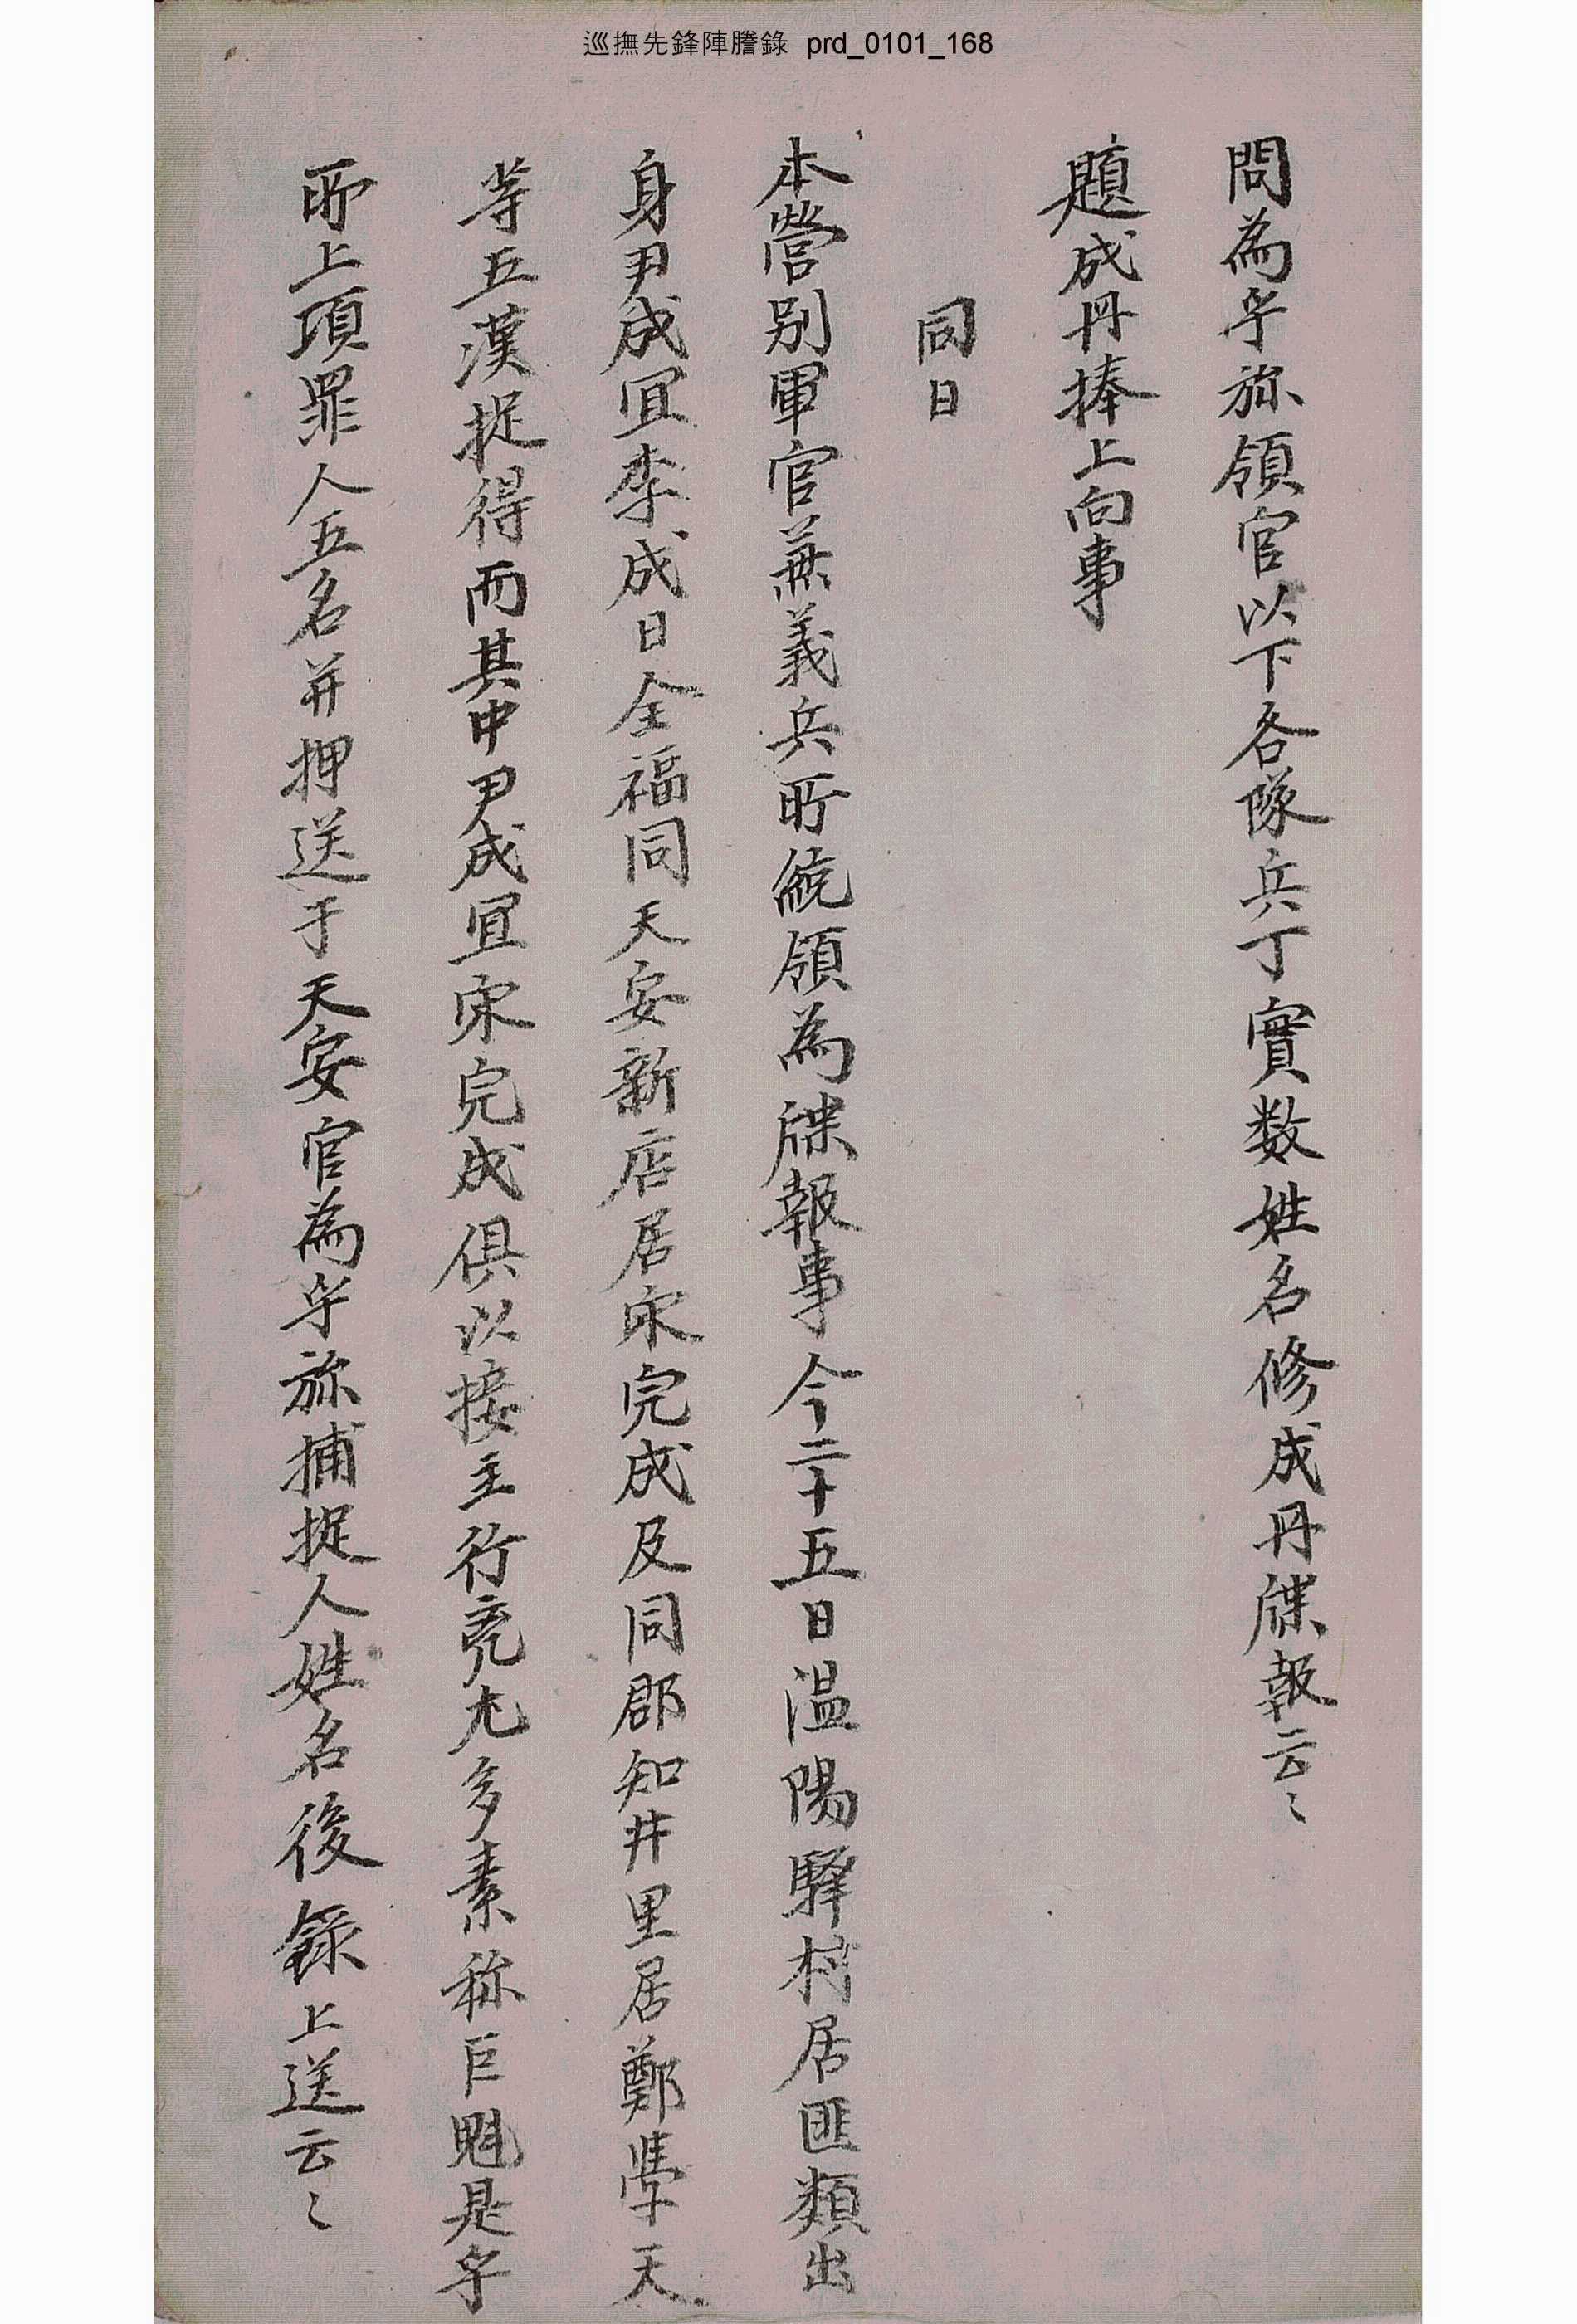 巡撫先鋒陣謄錄 prd_0101_168
問為乎旀領官以下各隊兵丁實数姓名修成丹牒報云〻
題成丹捧上向事
同日
本營別軍官兼義兵所統領為牒報事今二十五日溫陽驛村居匪類出
身尹成宜李成日全福同天安新店居宋完成及同郡知井里居鄭學天
等五漢捉得而其中尹成宜宋完成俱以接主行兇尤多素称巨魁是乎
所上項罪人五名并押送于天安官為乎旀捕捉人姓名後錄上送云〻